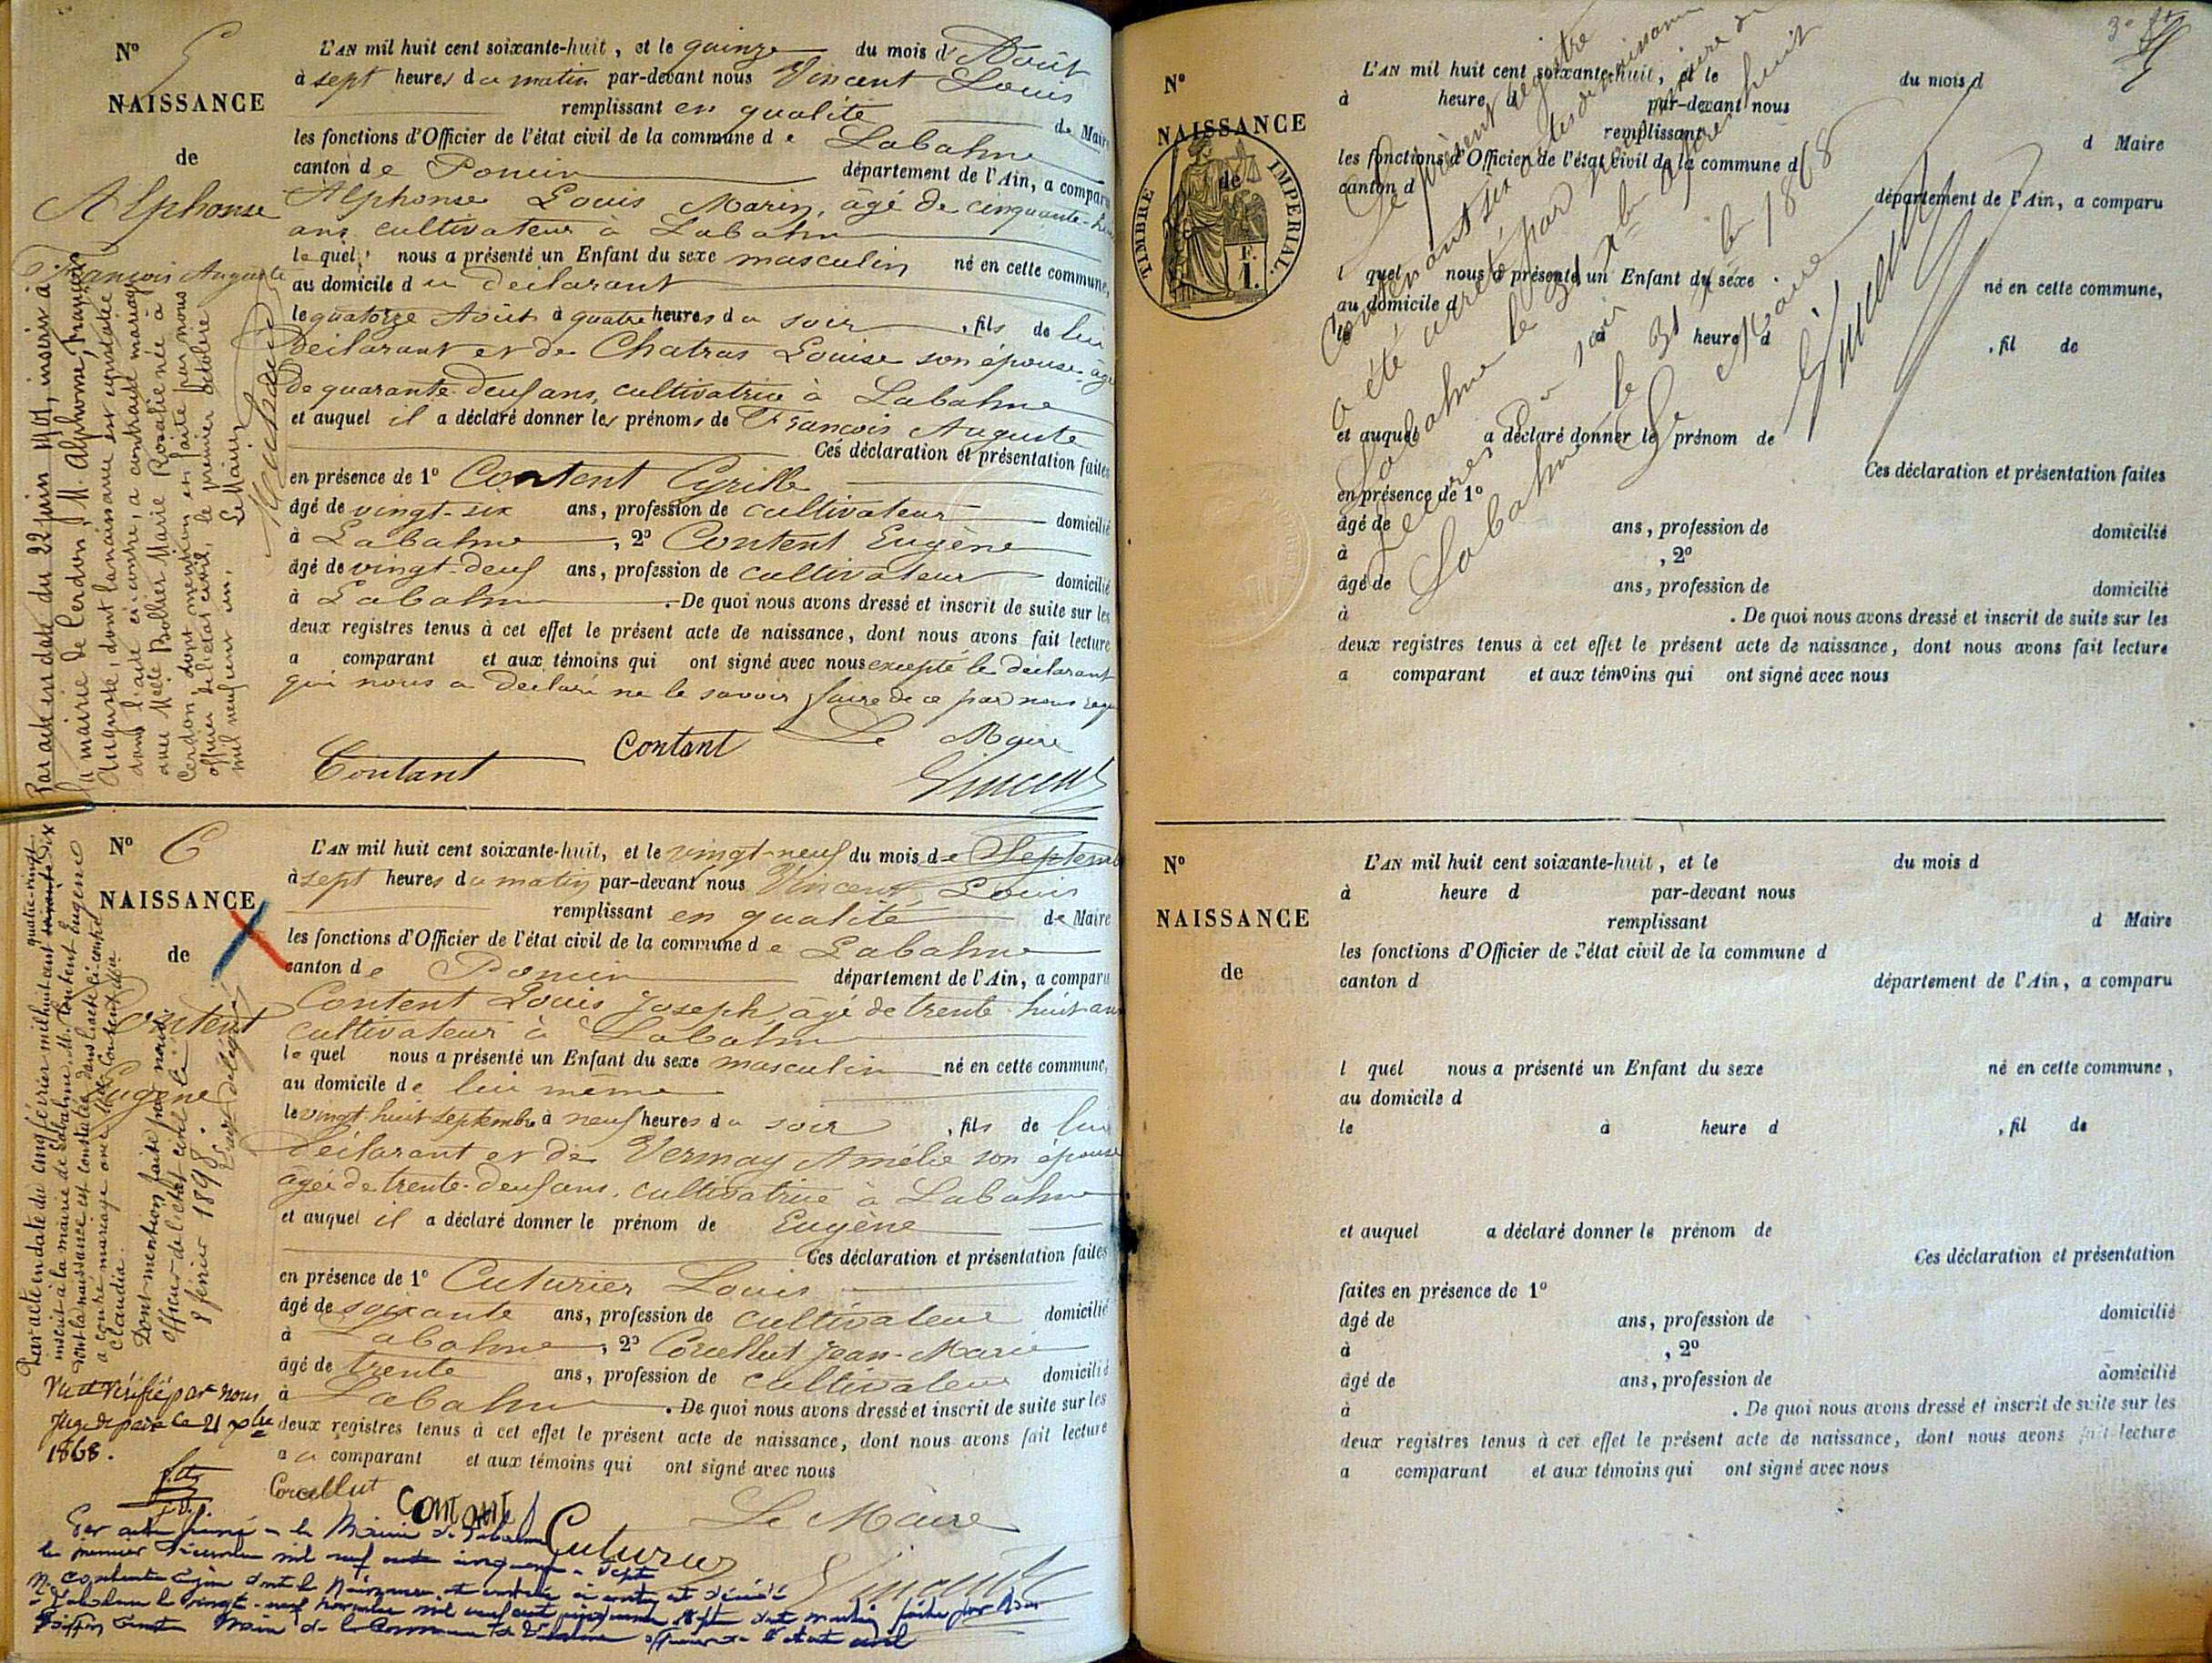 N° 5
NAISSANCE
de
Alphonse
François Auguste
L'AN mil huit cent soixante-huit, et le quinze du mois d'Août
à sept heures du matin par-devant nous Vincent Louis
remplissant en qualité de Maire
les fonctions d'Officier de l'état civil de la commune de Labalme
canton de Poncin département de l'Ain, a comparu
Alphonse Louis Marin, âgé de cinquante-
ans cultivateur à Labalme
lequel nous a présenté un Enfant du sexe masculin né en cette commune,
au domicile du déclarant
le quatorze Août à quatre heures du soir, fils de lui
déclarant et de Chatras Louise son épouse âgée
de quarante-deux ans, cultivatrice à Labalme
et auquel il a déclaré donner les prénoms de François Auguste
Ces déclaration et présentation faites
en présence de 1° Content Cyrille
âgé de vingt-six ans, profession de cultivateur domicilié
à Labalme, 2° Content Eugène
âgé de vingt-deux ans, profession de cultivateur domicilié
à Labalme. De quoi nous avons dressé et inscrit de suite sur les
deux registres tenus à cet effet le présent acte de naissance, dont nous avons fait lecture
a comparant et aux témoins qui ont signé avec nous excepté le déclarant
qui nous a déclaré ne le savoir faire de ce par nous requis
Le Maire
Contant Contant Vincent
Par acte en date du 22 juin 1901, inscrit à
la mairie de Cerdon, M. Alphonse, François
Auguste, dont la naissance est constatée
dans l'acte ci-contre, a contracté mariage
avec Melle Bollier Marie Rosalie née à
Cerdon, dont mention en faite par nous
officier de l'état civil, le premier octobre
mil neuf cent un,
Le Maire
N° 6
NAISSANCE
de
Content
Eugène
L'AN mil huit cent soixante-huit, et le vingt-neuf du mois de Septembre
à sept heures du matin par-devant nous Vincent Louis
remplissant en qualité de Maire
les fonctions d'Officier de l'état civil de la commune de Labalme
canton de Poncin département de l'Ain, a comparu
Content Louis Joseph âgé de trente-huit ans
cultivateur à Labalme
lequel nous a présenté un Enfant du sexe masculin né en cette commune,
au domicile de lui même
le vingt huit septembre à neuf heures du soir, fils de lui
déclarant et de Vermay Amélie son épouse
agée de trente-deux ans, cultivatrice à Labalme
et auquel il a déclaré donner le prénom de Eugène
Ces déclaration et présentation faites
en présence de 1° Cuturier Louis
âgé de soixante ans, profession de cultivateur domicilié
à Labalme, 2° Corcellut Jean-Marie
âgé de trente ans, profession de cultivateur domicilié
à Labalme. De quoi nous avons dressé et inscrit de suite sur les
deux registres tenus à cet effet le présent acte de naissance, dont nous avons fait lecture
au comparant et aux témoins qui ont signé avec nous
Corcellut Contant Cuturier Le Maire
Vincent
Par acte en date du cinq février mil huit cent quatre-vingt soixante dix
inscrit à la mairie de Labalme M. Content Eugène
dont la naissance est constatée dans l'acte ci-contre
a contré mariage avec Melle Content
Claudia.
Dont mention faite par nous
officier de l'état civil le
8 février 1898.
Vu et vérifié par nous
Juge de paix ce 21 xbre
1868.
Par acte dressé à la Mairie de Labalme
le premier décembre mil neuf cent cinquante-sept
le vingt-neuf novembre mil neuf cent cinquante sept dont mention faite par Nous
Maire de la Commune de Labalme officier de l'état civil
3e ft
N°
NAISSANCE
de
TIMBRE IMPERIAL.
F.
1.
L'AN mil huit cent soixante-huit, et le du mois d
à heure d par-devant nous
remplissant d Maire
les fonctions d'Officier de l'état civil de la commune d
canton d département de l'Ain, a comparu
l quel nous a présenté un Enfant du sexe né en cette commune,
au domicile d
le à heure d , fil de
et auquel a déclaré donner le prénom de
Ces déclaration et présentation faites
en présence de 1°
âgé de ans, profession de domicilié
à , 2°
âgé de ans, profession de domicilié
à . De quoi nous avons dressé et inscrit de suite sur les
deux registres tenus à cet effet le présent acte de naissance, dont nous avons fait lecture
a comparant et aux témoins qui ont signé avec nous
Le présent registre
contenant six actes de naissance
a été arrêté par nous maire de
Labalme le 31 xbre à trois huit
heures du soir
Labalme le 31 xbre 1868
Le Maire
Vincent
N°
NAISSANCE
de
L'AN mil huit cent soixante-huit, et le du mois d
à heure d par-devant nous
remplissant d Maire
les fonctions d'Officier de l'état civil de la commune d
canton d département de l'Ain, a comparu
l quel nous a présenté un Enfant du sexe né en cette commune,
au domicile d
le à heure d , fil de
et auquel a déclaré donner le prénom de
Ces déclaration et présentation
faites en présence de 1°
âgé de ans, profession de domicilié
à , 2°
âgé de ans, profession de domicilié
à . De quoi nous avons dressé et inscrit de suite sur les
deux registres tenus à cet effet le présent acte de naissance, dont nous avons fait lecture
a comparant et aux témoins qui ont signé avec nous